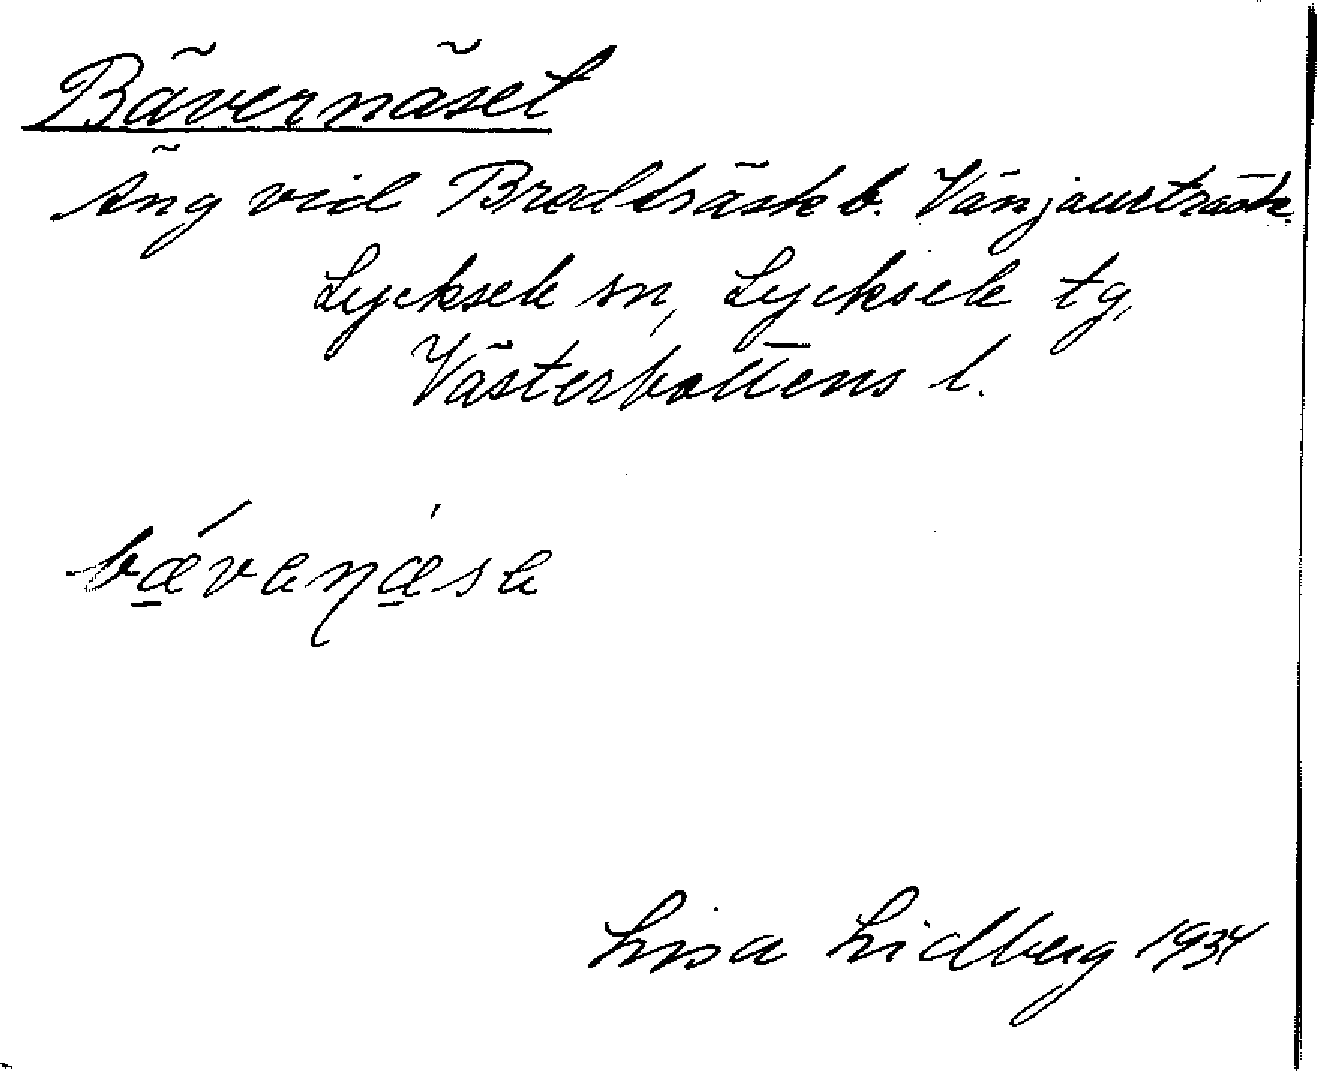 Bävernäset
Äng vid Bredträsk b. Vänjaurträsk.
Lycksele sn, Lycksele tg,
Västerbottens l.
bǽvenǽse
Lisa Lidberg 1934